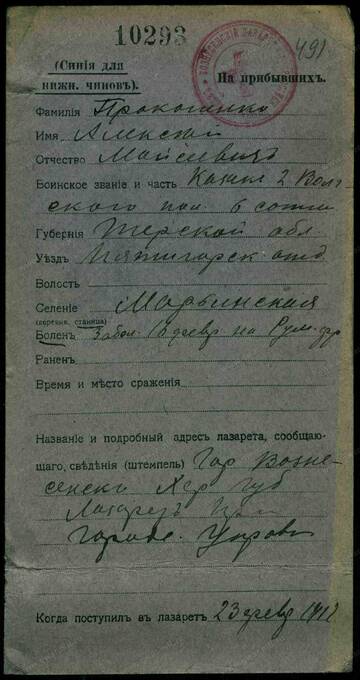 10293
491
(Синія для
нижн. чиновъ).
На прибывшихъ.
Фамилія Прокопенко
Имя Алексѣй
Отчество Моисеевичъ
Воинское званіе и часть Казакъ 2 Волг-
скаго пол 6 сотни
Губернія Терской обл
Уѣздъ Пятигорск отд
Волость
Селеніе Марьинская
(деревня, станица)
Боленъ Забол 18 февр на Рум. фр
Раненъ
Время и мѣсто сраженія
Названіе и подробный адресъ лазарета, сообщаю-
щаго, свѣдѣнія (штемпель) Гор Возне-
сенскъ Хер Губ
Лазаретъ при
Городс. Управ
Когда поступилъ въ лазаретъ 23 февр 1917